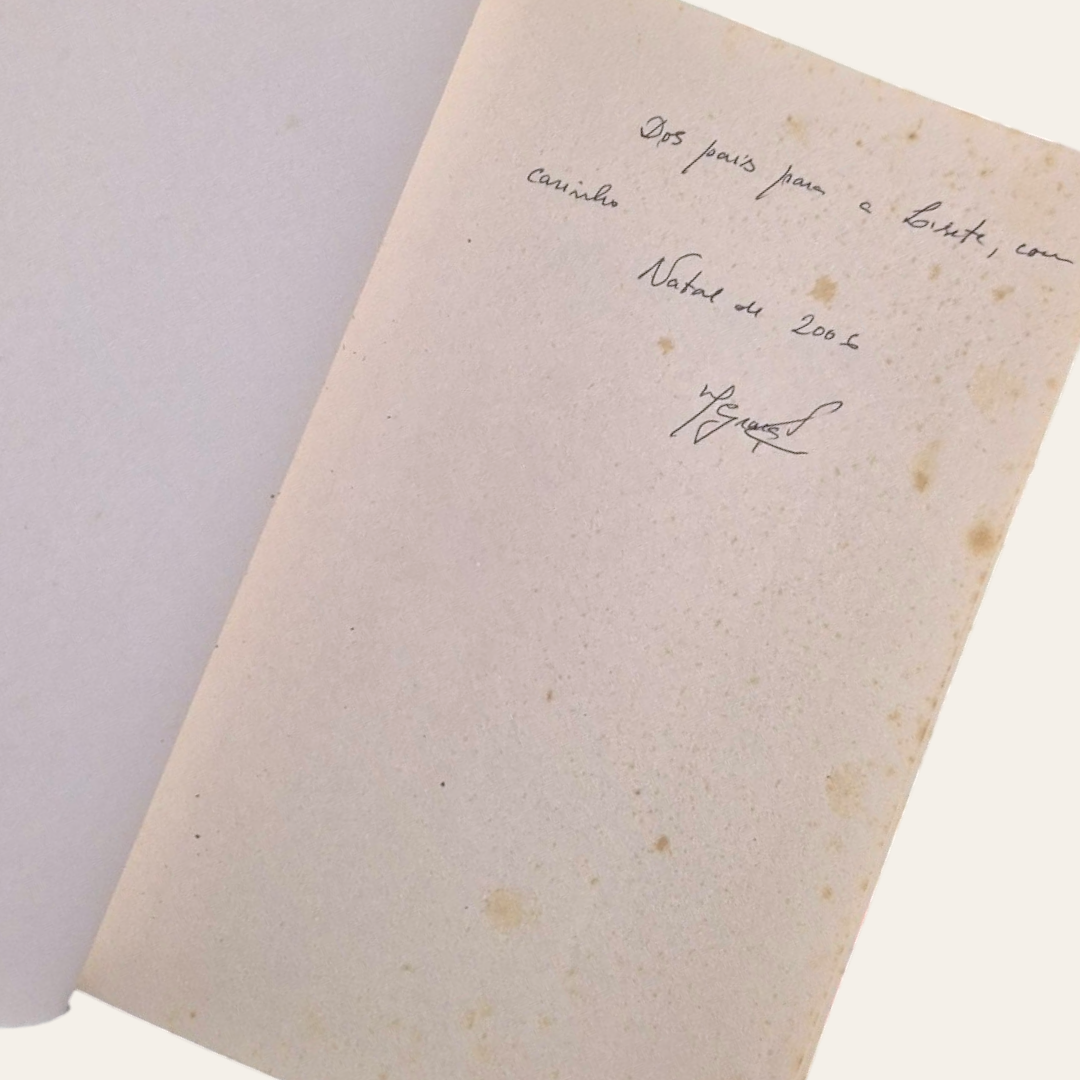 Dos pais para a Lisete, com
carinho
Natal de 2006